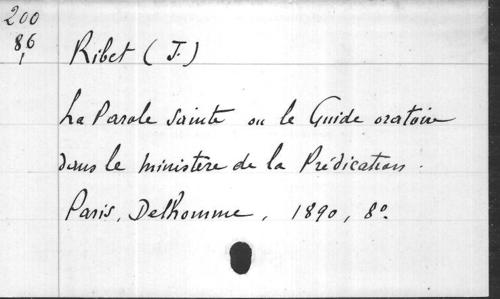 200
86
Ribet (J.)
La Parole sainte ou le Guide oratoire
dans le ministère de la Prédication.
Paris, Delhomme, 1890, 8°.